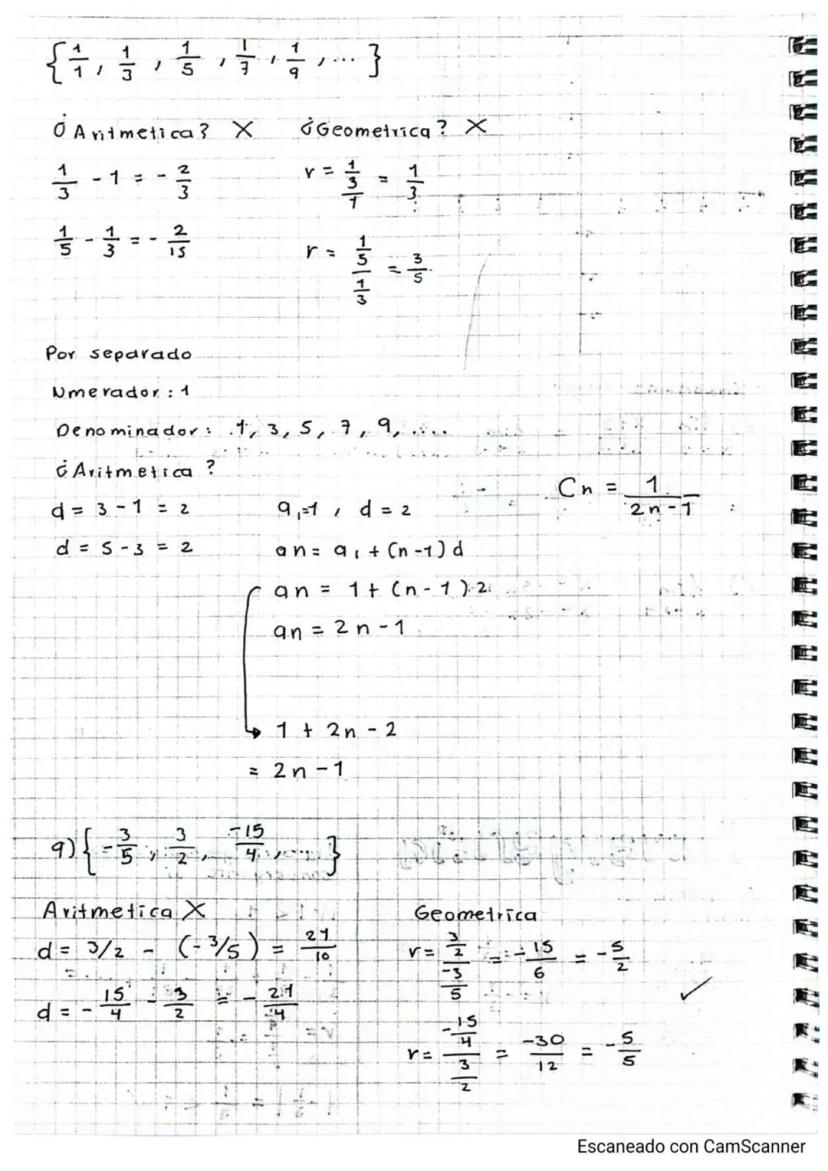 {1/1, 1/3, 1/5, 1/7, 1/9, ...}
¿Aritmetica? X ¿Geometrica? X
1/3 - 1 = -2/3 r = (1/3)/1 = 1/3
1/5 - 1/3 = -2/15 r = (1/5)/(1/3) = 3/5
Por separado
Numerador: 1
Denominador: 1, 3, 5, 7, 9, ...
¿Aritmetica?
Cn = 1/(2n-1)
d = 3 - 1 = 2 a₁=1, d = 2
d = 5 - 3 = 2 an = a₁ + (n-1)d
an = 1 + (n-1)2
an = 2n - 1
1 + 2n - 2
= 2n - 1
9) {-3/5, 3/2, -15/4, ...}
Aritmetica X Geometrica
d = 3/2 - (-3/5) = 21/10 r = (3/2)/(-3/5) = -15/6 = -5/2
d = -15/4 - 3/2 = -21/4 ✓
r = (-15/4)/(3/2) = -30/12 = -5/5
Escaneado con CamScanner